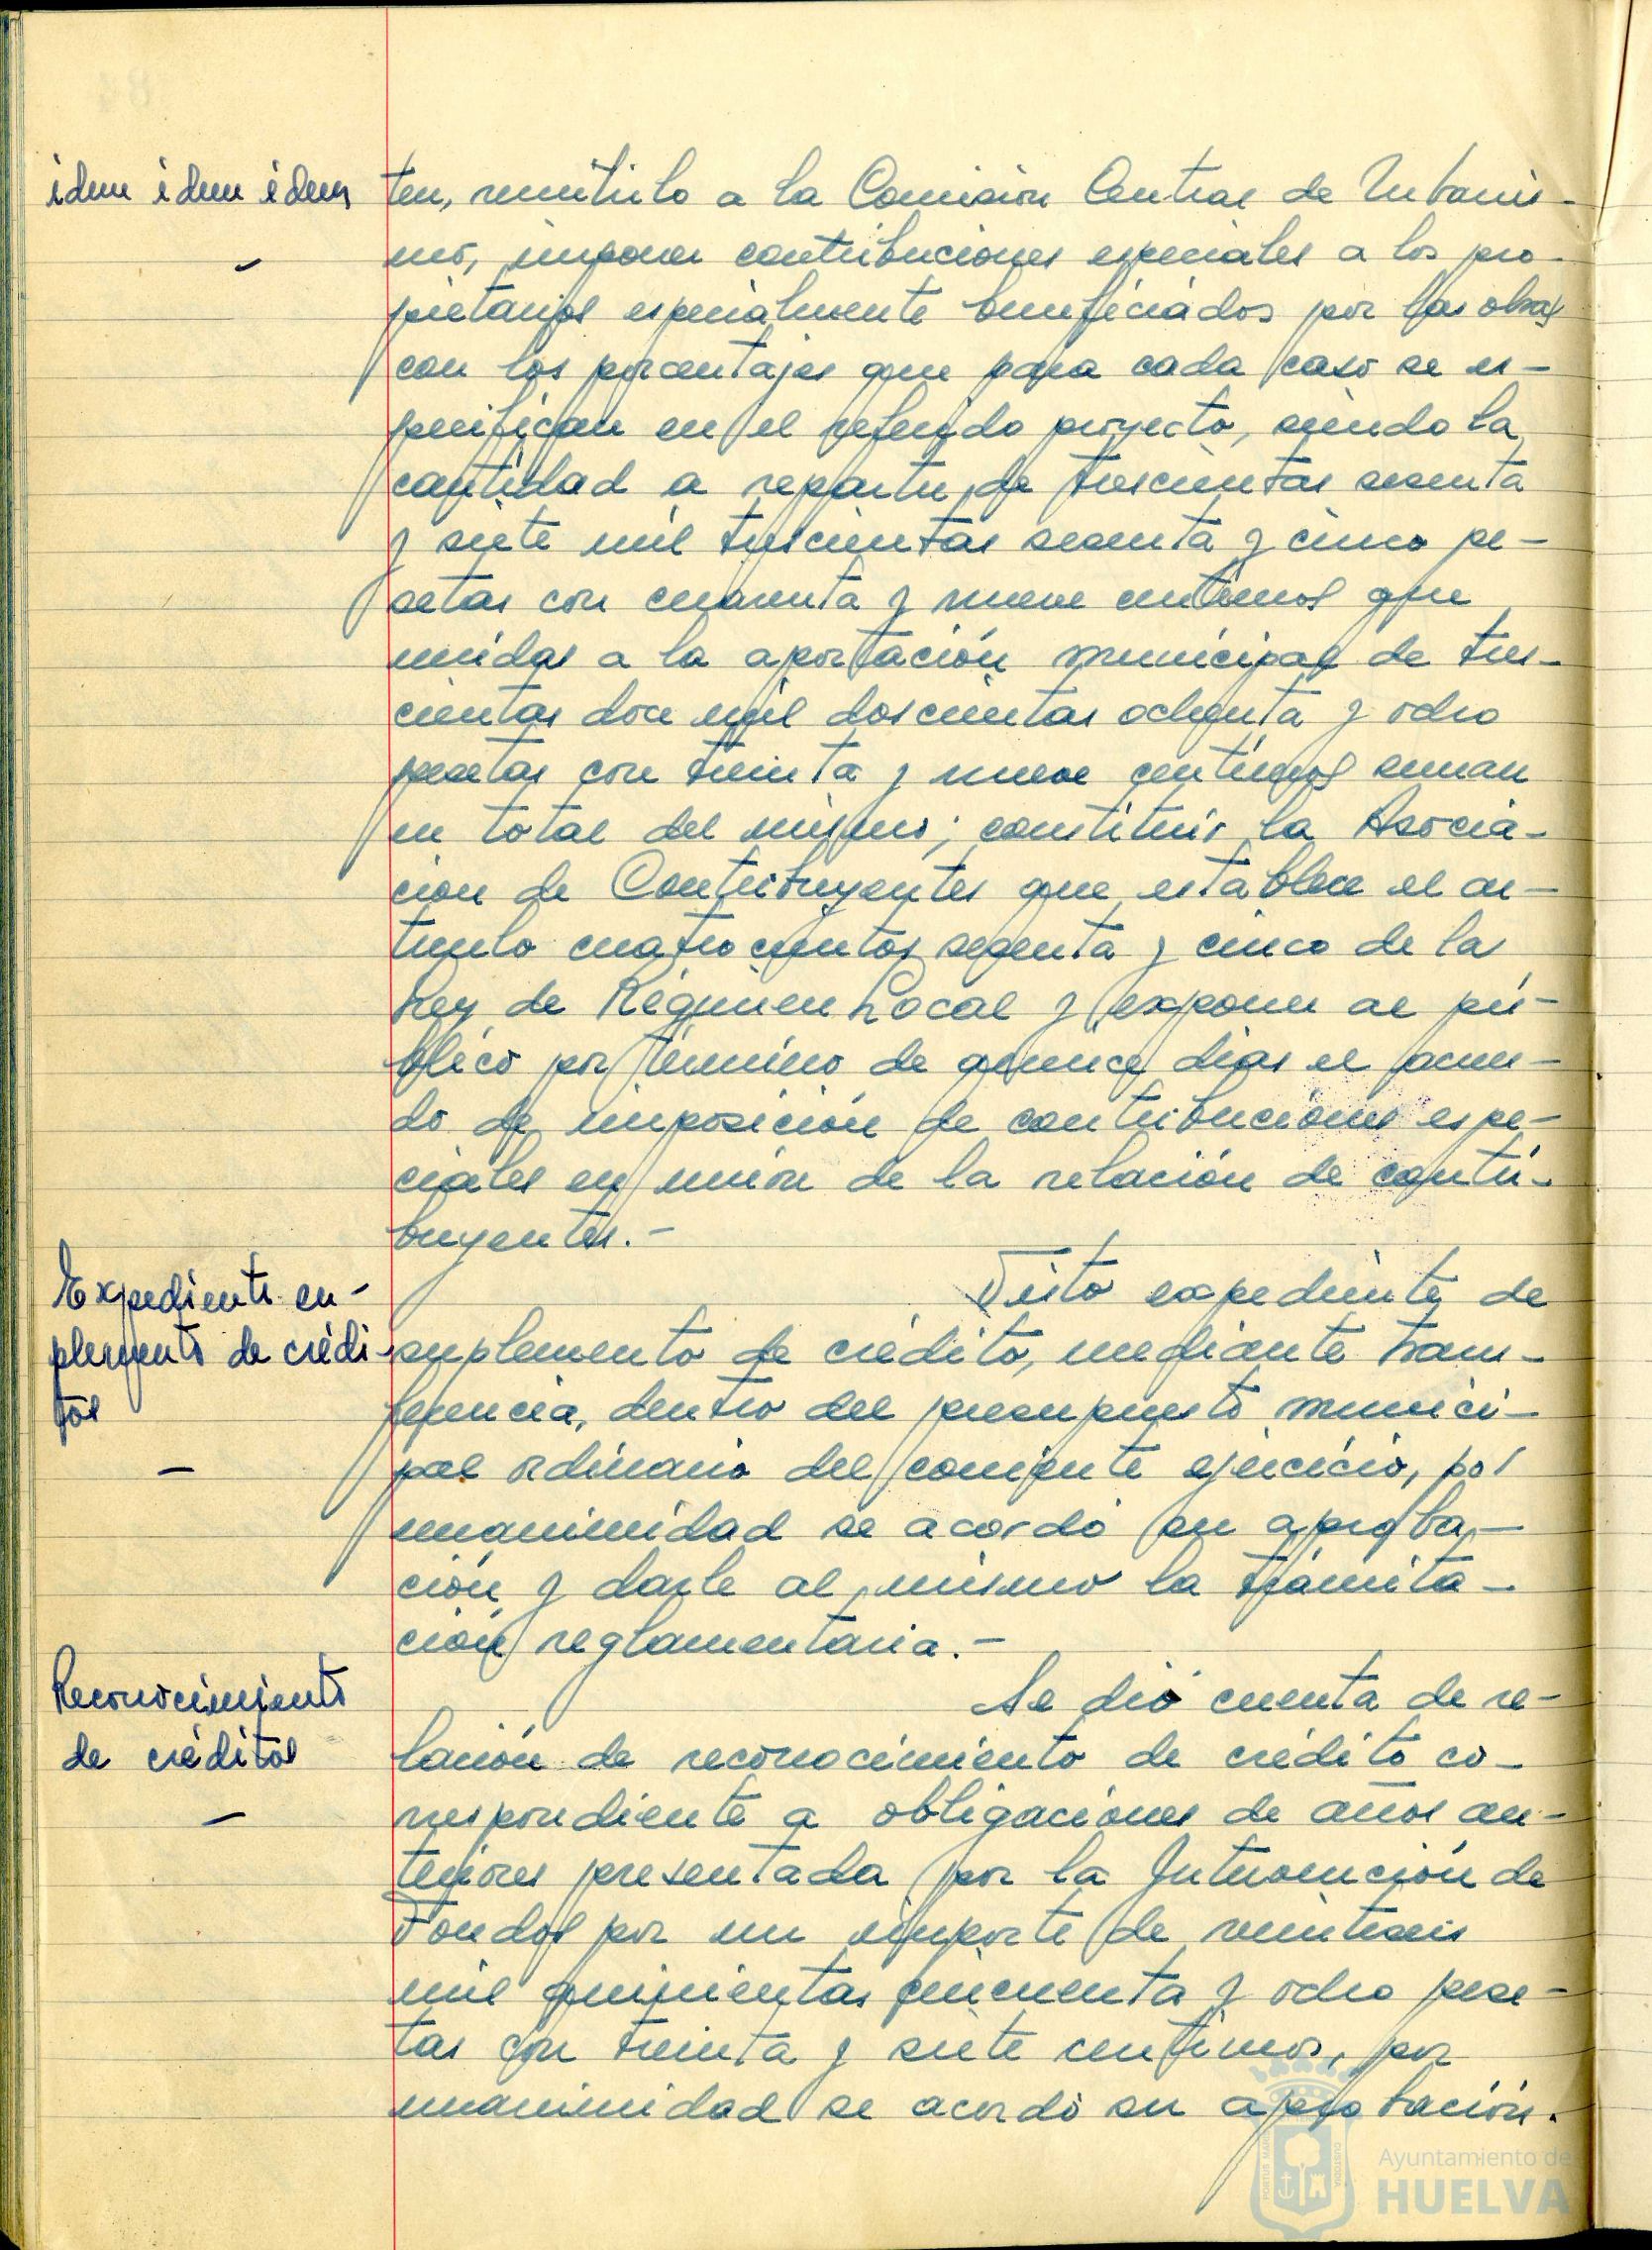 idem idem idem
ten, remitirlo a la Comisión Central de Urbanis-
mo, imponer contribuciones especiales a los pro-
pietarios especialmente beneficiados por las obras
con los porcentajes que para cada caso se es-
pecifican en el referido proyecto, siendo la
cantidad a repartir de trescientas sesenta
y siete mil trescientas sesenta y cinco pe-
setas con cuarenta y nueve centimos que
unidas a la aportación municipal de tres-
cientas doce mil doscientas ochenta y ocho
pesetas con treinta y nueve centimos suman
en total del mismo; constituir la Asocia-
cion de Contribuyentes que establece el ar-
ticulo cuatrocientos sesenta y cinco de la
Ley de Régimen Local y exponer al pú-
blico por término de quince dias el acuer-
do de imposición de contribuciones espe-
ciales en unión de la relación de contri-
buyentes.-
Expediente su-
plemento de crédi-
tos
Visto expediente de
suplemento de crédito, mediante trans-
ferencia, dentro del presupuesto munici-
pal ordinario del corriente ejercicio, por
unanimidad se acordó su aproba-
ción y darle al mismo la tramita-
ción reglamentaria.-
Reconocimiento
de créditos
Se dió cuenta de re-
lación de reconocimiento de crédito co-
rrespondiente a obligaciones de años an-
teriores presentada por la Intervención de
Fondos por un importe de veintiseis
mil quinientas cincuenta y ocho pese-
tas con treinta y siete centimos, por
unanimidad se acordó su aprobación.
Ayuntamiento de
HUELVA